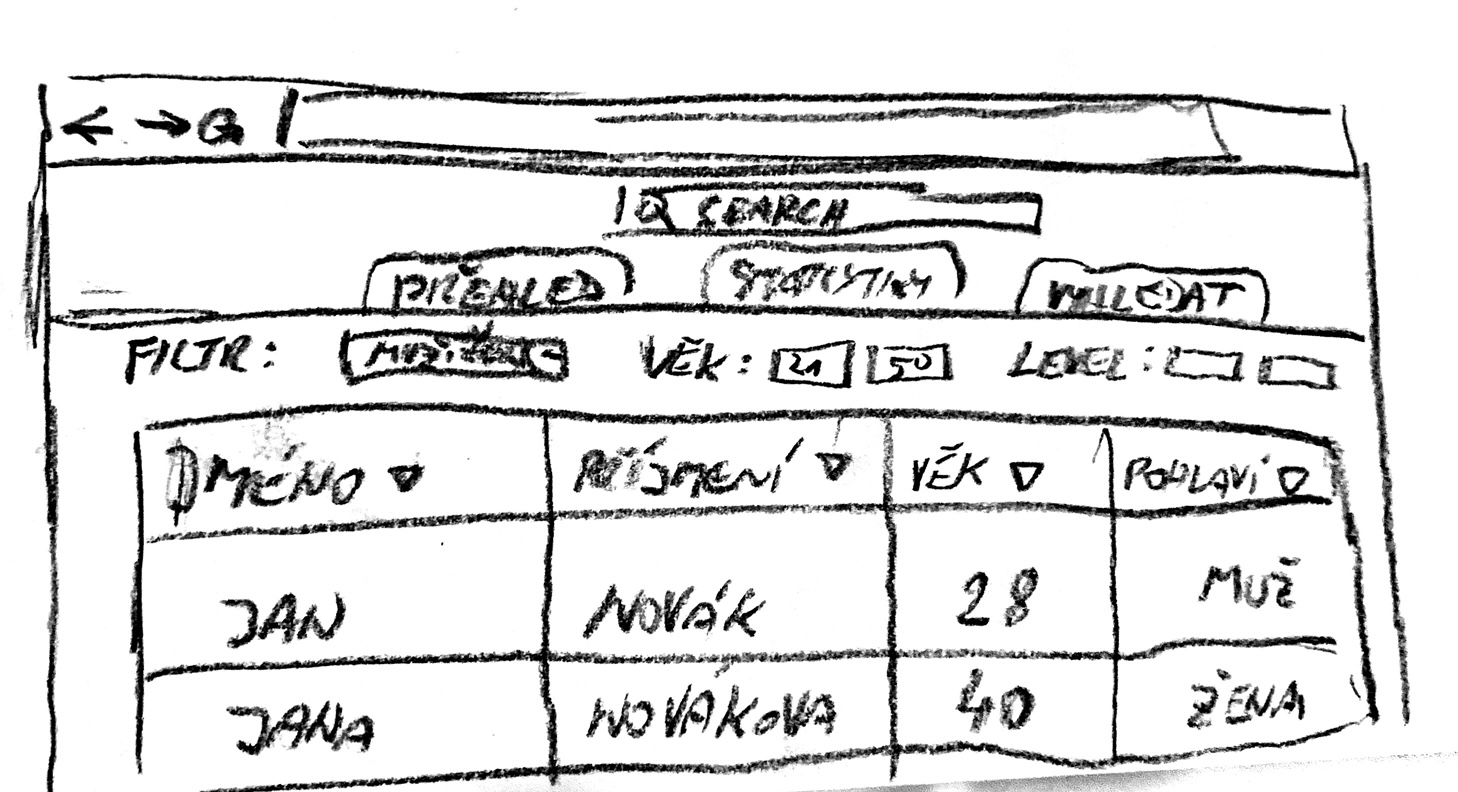 SEARCH
PŘEHLED STATISTIKY VYHLEDAT
FILTR: VĚK: 21 50 LEVEL:
JMÉNO PŘÍJMENÍ VĚK POHLAVÍ
JAN NOVÁK 28 MUŽ
JANA NOVÁKOVA 40 ŽENA